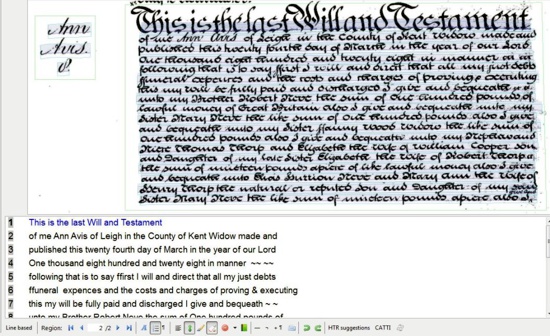 Ann
Avis.
P.
This is the last Will and Testament
of me Ann Avis of Leigh in the County of Kent Widow made and
published this twenty fourth day of March in the year of our Lord
One thousand eight hundred and twenty eight in manner
following that is to say ffirst I will and direct that all my just debts
ffuneral expences and the costs and charges of proving & executing
this my will be fully paid and discharged I give and bequeath
unto my Brother Robert Neve the sum of One hundred pounds of
lawful money of Great Britain also I give and bequeath unto my
Sister Mary Neve the like sum of One hundred pounds also I give
and bequeath unto my Sister ffanny Wood Widow the like sum of
One hundred pounds also I give and bequeath unto my Nephew and
Niece Thomas Thorp and Elizabeth the wife of William Cooper son
and Daughter of my late Sister Elizabeth the wife of Robert Thorp
the sum of nineteen pounds apiece of like lawful money also I give
and bequeath unto Elias Neve and Mary Ann the wife of
Henry Thorp the natural or reputed son and Daughter of my said
Sister Mary Neve the like sum of nineteen pounds apiece also I
1 This is the last Will and Testament
2 of me Ann Avis of Leigh in the County of Kent Widow made and
3 published this twenty fourth day of March in the year of our Lord
4 One thousand eight hundred and twenty eight in manner ~~ ~~
5 following that is to say ffirst I will and direct that all my just debts
6 ffuneral  expences and the costs and charges of proving & executing
7 this my will be fully paid and discharged I give and bequeath ~ ~
8 unto my Brother Robert Neve the sum of One hundred pounds of
Line based Region: 2 /2 HTR suggestions CATTI